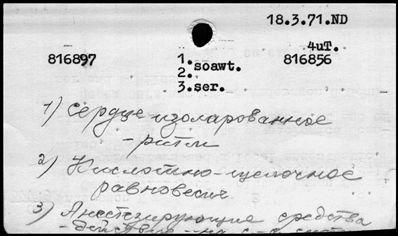 18.3.71.ND
4uT.
816897 1.soawt. 816856
2.
3.ser.
1) Сердце изоларованное
- ритм
2) Кислотно-щелочное
равновесие
3) Анестезирующие средства
- действие - на с-с сист